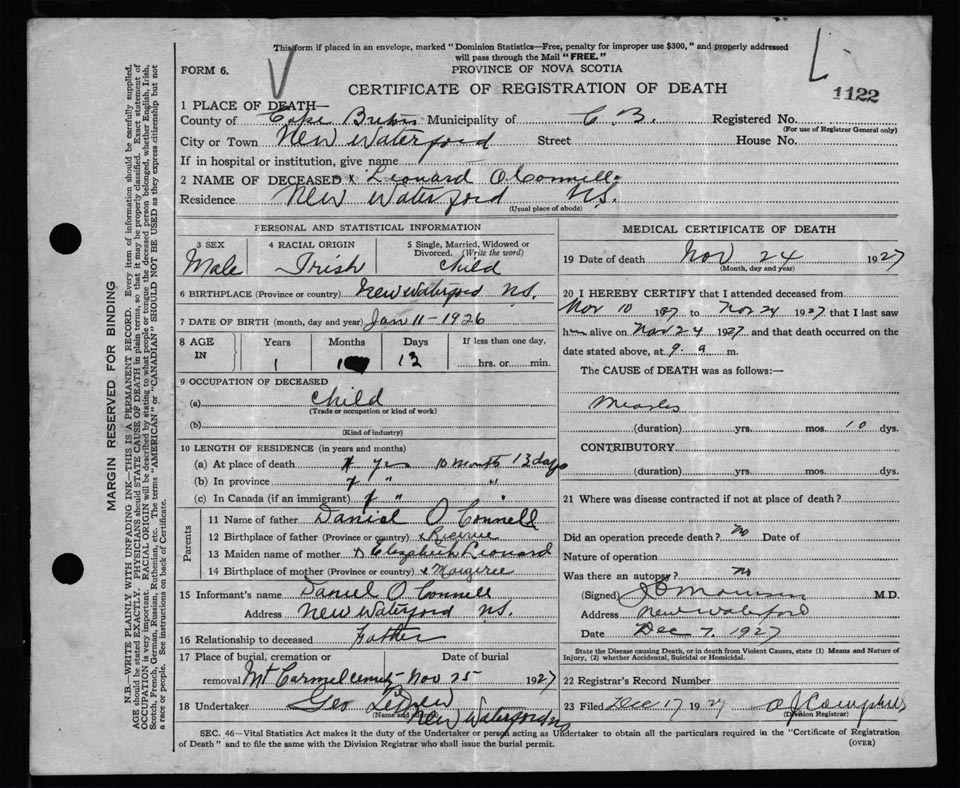 This form if placed in an envelope, marked "Dominion Statistics—Free, penalty for improper use $300," and properly addressed
will pass through the Mail "FREE."
FORM 6.
PROVINCE OF NOVA SCOTIA
CERTIFICATE OF REGISTRATION OF DEATH
1122
1 PLACE OF DEATH—
County of Cape Breton Municipality of C. B. Registered No.
(For use of Registrar General only)
City or Town New Waterford Street House No.
If in hospital or institution, give name
2 NAME OF DECEASED x Leonard O'Connell
Residence New Waterford N.S.
(Usual place of abode)
PERSONAL AND STATISTICAL INFORMATION
3 SEX 4 RACIAL ORIGIN 5 Single, Married, Widowed or Divorced. (Write the word)
Male Irish Child
6 BIRTHPLACE (Province or country) New Waterford N.S.
7 DATE OF BIRTH (month, day and year) Jan 11-1926
8 AGE IN Years Months Days If less than one day,
1 1 13 hrs. or min.
9 OCCUPATION OF DECEASED
(a) child
(Trade or occupation or kind of work)
(b)
(Kind of industry)
10 LENGTH OF RESIDENCE (in years and months)
(a) At place of death 1 yr 10 month 13 days
(b) In province 1 " "
(c) In Canada (if an immigrant) 1 " "
Parents
11 Name of father Daniel O Connell
12 Birthplace of father (Province or country) x Reserve
13 Maiden name of mother x Elizabeth Leonard
14 Birthplace of mother (Province or country) x Margaree
15 Informant's name Daniel O Connell
Address New Waterford N.S.
16 Relationship to deceased Father
17 Place of burial, cremation or removal Mt Carmel Cemety Date of burial Nov 25 1927
18 Undertaker Geo
(Name and
New Waterford NS
MEDICAL CERTIFICATE OF DEATH
19 Date of death Nov 24 1927
(Month, day and year)
20 I HEREBY CERTIFY that I attended deceased from
Nov 10 1927 to Nov 24 1927 that I last saw
him alive on Nov 24 1927 and that death occurred on the
date stated above, at 9 a m.
The CAUSE of DEATH was as follows:—
Measles
(duration) yrs. mos. 10 dys.
CONTRIBUTORY.
(duration) yrs. mos. dys.
21 Where was disease contracted if not at place of death?
Did an operation precede death? no Date of
Nature of operation
Was there an autopsy? no
(Signed) M.D.
Address New Waterford
Date Dec 7. 1927
State the Disease causing Death, or in death from Violent Causes, state (1) Means and Nature of
Injury, (2) whether Accidental, Suicidal or Homicidal.
22 Registrar's Record Number
23 Filed Dec 17 1927
(Division Registrar)
SEC. 46—Vital Statistics Act makes it the duty of the Undertaker or person acting as Undertaker to obtain all the particulars required in the "Certificate of Registration
of Death" and to file the same with the Division Registrar who shall issue the burial permit.
(OVER)
MARGIN RESERVED FOR BINDING
N.B.—WRITE PLAINLY WITH UNFADING INK—THIS IS A PERMANENT RECORD. Every item of information should be carefully supplied.
AGE should be stated EXACTLY. PHYSICIANS should STATE CAUSE OF DEATH in plain terms, so that it may be properly classified. Exact statement of
OCCUPATION is very important. RACIAL ORIGIN will be described by stating to what people or tongue the deceased person belonged, whether English, Irish,
Scotch, French, German, Russian, Ruthenian, etc. The terms "AMERICAN" or "CANADIAN" SHOULD NOT BE USED as they express citizenship but not
a race or people. See instructions on back of Certificate.